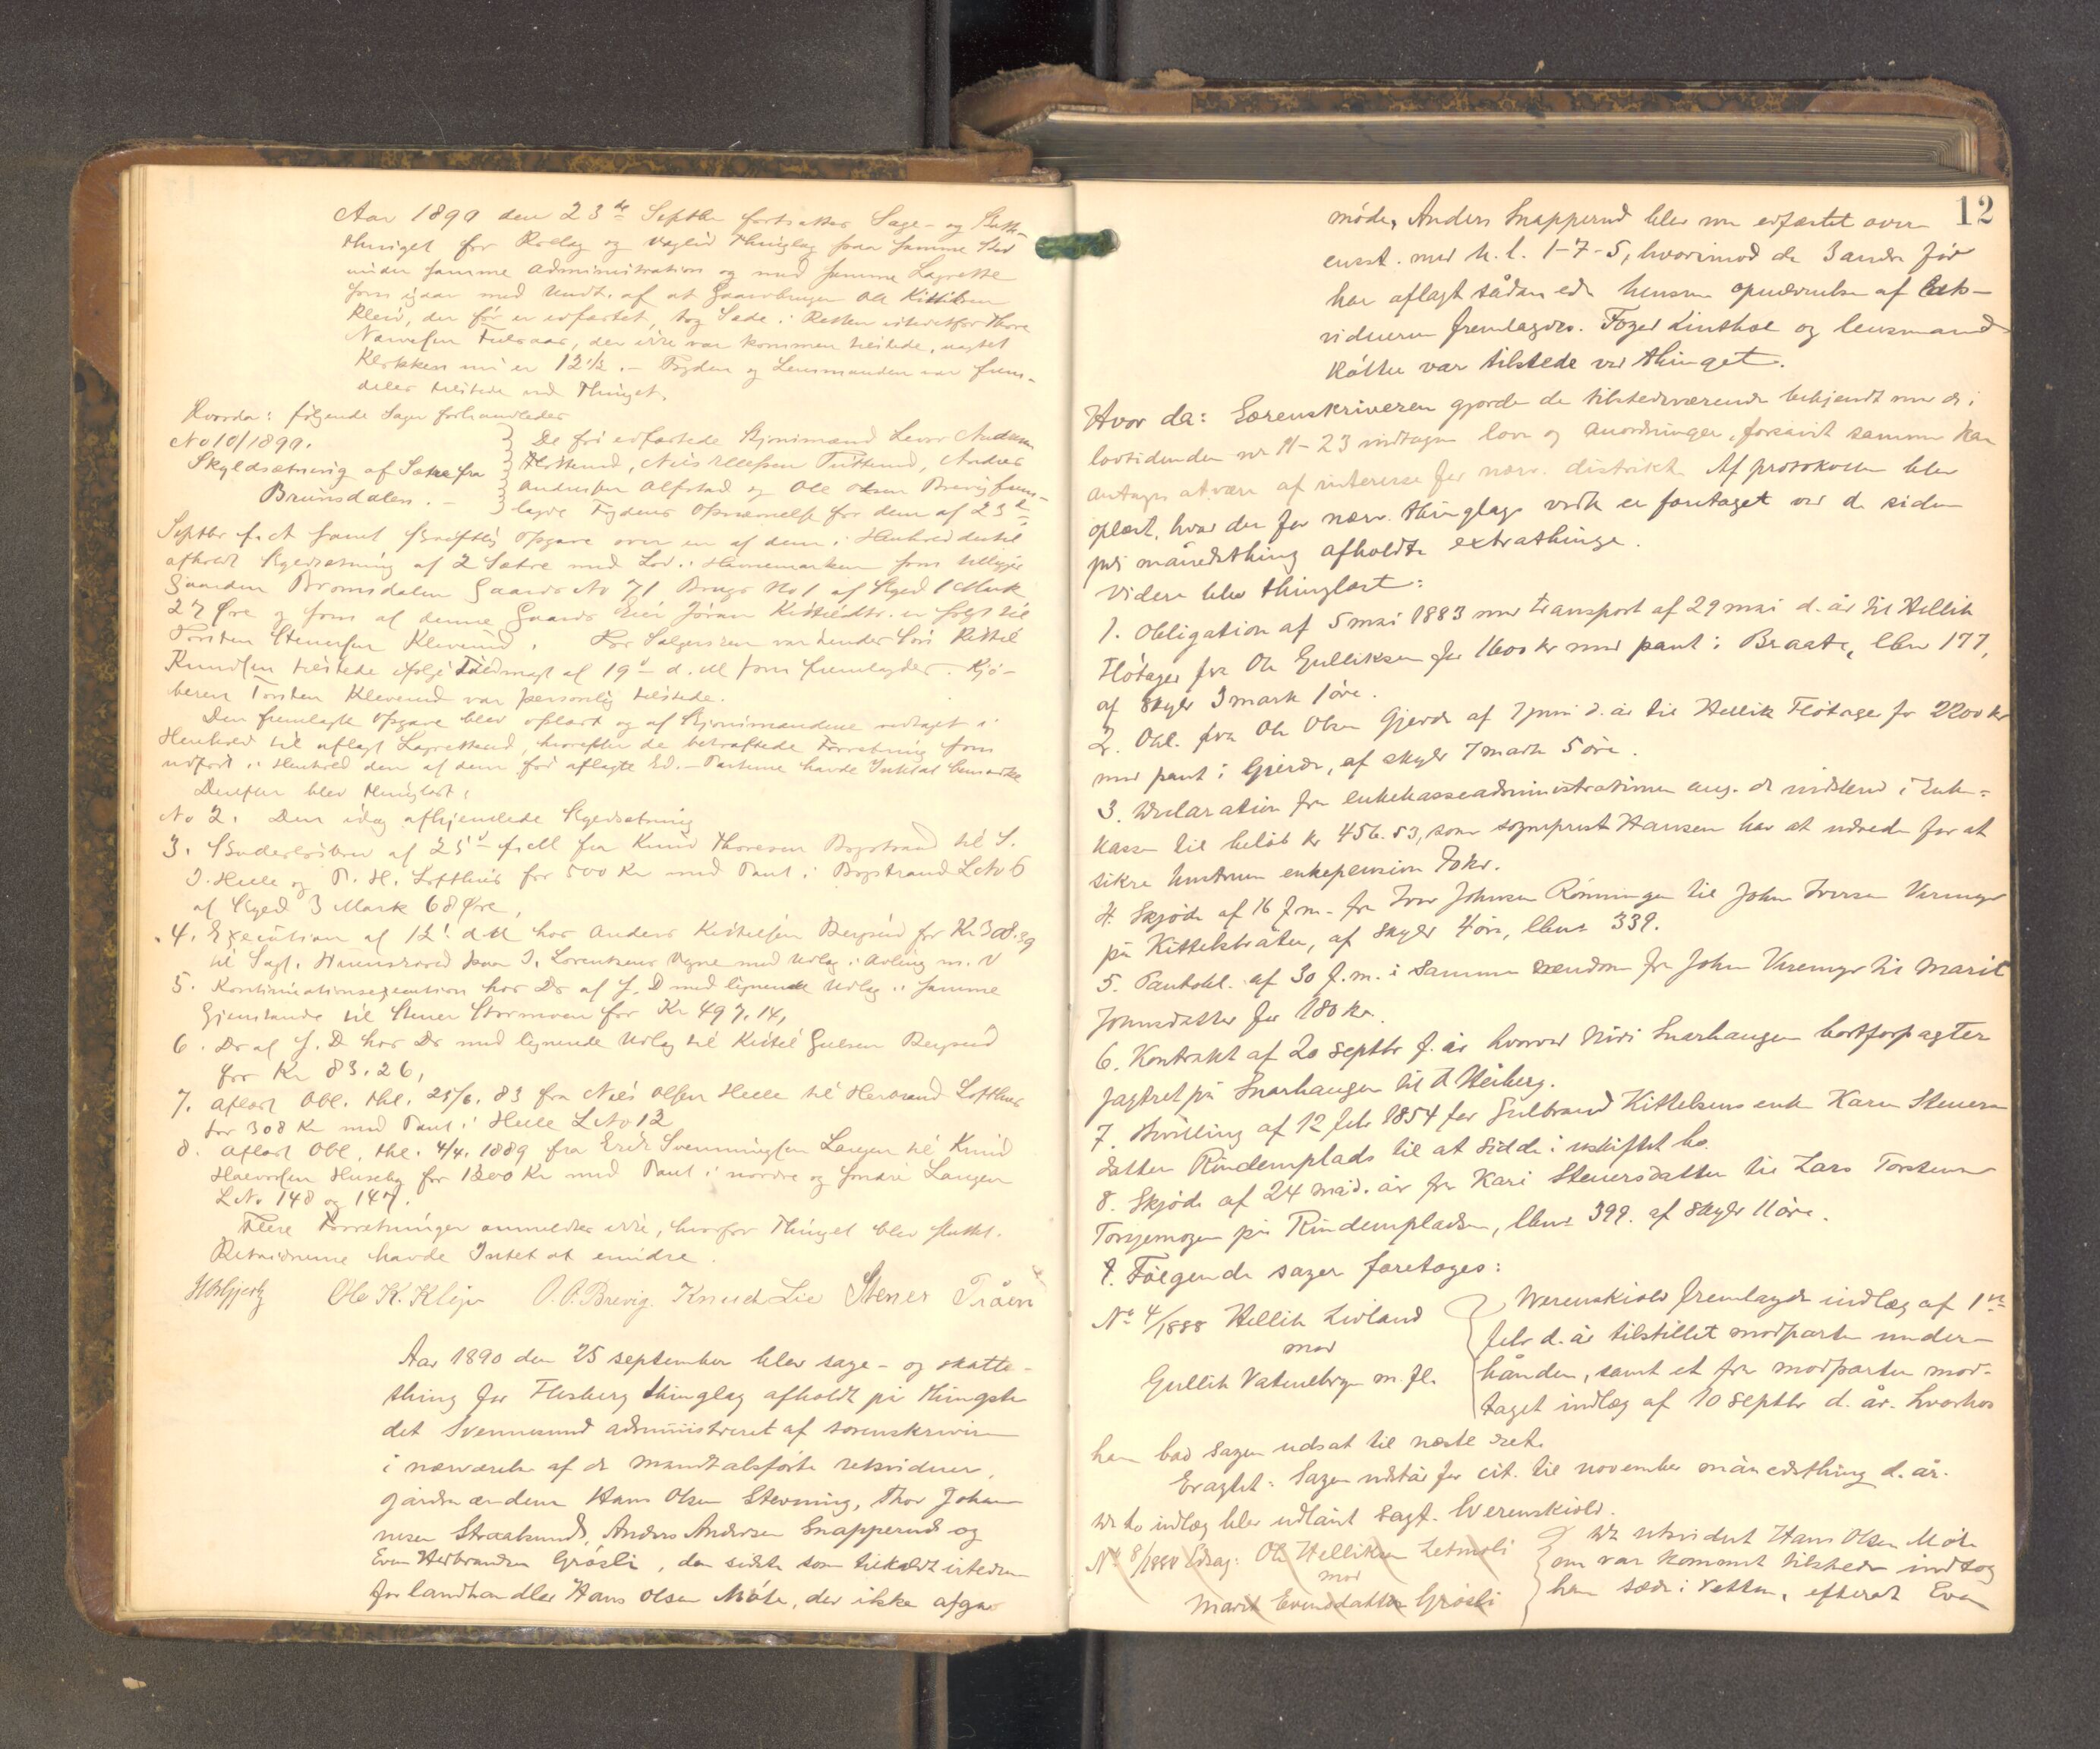 Aar 1890 den 23de Septbr fortsattes Sage- og Skatte-
thinget for Rollag og Veglid Thinglag paa samme Sted
under samme Administration og med samme Lagrette
som igaar med Undt. af at Gaardbruger Ole Kittilsen
Kleiv, der før er edfæstet, tog Sæde i Retten istedetfor Thore
der ikke var kommen tilstede, uagtet
Klokken nu er 12 1/2. – Fogden og Lensmanden var frem-
deles tilstede ved Thinget.
Hvorda: følgende Sager forhandledes
No 10/1890.
Skyldsætning af Sætre fra
Brunsdalen. –
De før edfæstede Skjønsmænd Levor Andersen
Andres
Andersen Alfstad og Ole Olsen Brevig frem-
lagde Fogdens Opnævnelse for dem af 23de
Septbr f. A samt skriftlig Opgave over en af dem i Henhold dertil
afholdt Skyldsætning af 2 Sætre med Lod i Havnemarken som tilligger
Gaarden Bromsdalen Gaards No 71 Brugs No 1 af Skyld 1 Mark
27 Øre og som af denne Gaards Eier Jøran Kittilsdtr. er solgt til
Torsten Stenersen Kleverud. For Sælgersken var hendes Søn Kittil
Knudsen tilstede ifølge Fuldmagt af 19de d. M som fremlagdes. Kjø-
beren Torsten Kleverud var personlig tilstede.
Den fremlagte Opgave blev oplæst og af Skjønsmændene vedtaget i
Henhold til aflagt Lagretteed, hvorefter de bekræftede Forretning som
udført i Henhold den af dem før aflagte Ed. – Parterne havde Intet at bemærke
Derefter blev thinglæst:
No 2. Den idag afhjemlede Skyldsætning
3. af 25de f. M fra Knud Thoresen Bogstrand til S.
J. Helle og T. H. Lofthus for 500 Kr med Pant i Bogstrand LNo 6
af Skyld 3 Mark 68 Øre,
4. Execution af 12' d M hos Anders Kittelsen Bergerud for Kr 308.39
til Sagf. paa J. Lorentzens Vegne med Udlæg i Avling m. V
5. Kontinuationsexecution hos Do af s. D med lignende Udlæg i samme
Gjenstande til Stener Stormoen for Kr 497.14,
6. Do af s. D hos Do med lignende Udlæg til Kittil Gulsen Bergerud
for Kr 83.26,
7. Aflæst Obl. thl. 25/6. 83 fra Nils Olsen Helle til Herbrand Lofthus
for 308 Kr med Pant i Helle LNo 12
8. Aflæst Obl. thl. 4/4. 1889 fra Erik Svenningsen Langen til Knud
Halvorsen Huseby for 1200 Kr med Pant i nordre og søndre Langen
LNo 148 og 147.
Flere Forretninger anmeldtes ikke, hvorfor Thinget blev sluttet.
Retsvidnerne havde Intet at erindre.
Ole K. Kleiv O. O. Brevig. Knud Lie Stener Tråen
Aar 1890 den 25 september blev sage- og skatte-
thing for Flesberg thinglag afholdt på thingste-
det Svennesund administreret af sorenskriveren
i nærværelse af de mandtalsførte retsvidner,
gårdmændene Hans Olsen Stevning, Thor Johan-
nesen Straalsund, Anders Andersen Snapperud og
Even Herbrandsen Gråsli, den sidste som tilkaldt istedenfor
for landhandler Hans Olsen Måte, der ikke afgav
12
møde, Anders Snapperud blev nu edfæstet over-
ensst. med N. L. 1-7-5, hvorimod de 3 andre før
har aflagt sådan ed. opnævnelse af Lav-
vidnerne fremlagdes. Foged Lintho og lensmand
Kåtter var tilstede ved thinget.
Hvor da: Sorenskriveren gjorde de tilstedeværende bekjendt med de i
lovtidenden nr 11-23 indtagne love og anordninger, forsåvidt samme kan
antages at være af interesse for nærv. distrikt. Af protokollen blev
oplæst, hvad der for nærv. thinglags vedk er foretaget ved de siden
på månedsthing afholdte extrathinge.
Videre blev thinglæst:
1. Obligation af 5 mai 1883 med transport af 29 mai d. år til Hellik
Flåtager fra Ole Gulliksen for 1600 kr med pant i Braate, lbnr 177,
af skyld 3 mark 1 øre.
2. Obl. fra Ole Olsen Gjerde af 7 juni d. år til Hellik Flåtager for 2200 kr
med pant i Gjerde, af skyld 7 mark 5 øre.
3. Deklaration fra enkekasseadministrationen ang. et indskud i Enke-
kassen til beløb kr 456.53, som sogneprest Hansen har at udrede for at
sikre hustruen enkepension 70 kr.
4. Skjøde af 16 f.m. fra Iver Johnsen Rønningen til John Iversen Væringmyr
på Kittelsbråten, af skyld 4 øre, lbnr 339.
5. Pantobl. af 30 f.m. i samme eiendom fra John til Marit
Johnsdatter for 180 kr.
6. Kontrakt af 20 septbr f. år hvorved Siri Snarhaugen bortforpagter
jagtret på Snarhaugen til A Heiberg.
7. Bevilling af 12 febr 1854 for Gulbrand Kittelsens enke Karen Steners-
datter Rindemplads til at sidde i uskiftet bo.
8. Skjøde af 24 mai d. år fra Kari Stenersdatter til Lars Torstensen
på Rindempladsen, lbnr 399. af skyld 11 øre.
†. Følgende sager foretoges:
No 4/1888 Hellik Livland
mod
Gullik Vatnebryn m. fl.
Werenskiold fremlagde indlæg af 1ste
febr d. år tilstillet modparten under-
hånden, samt et fra modparten mod-
taget indlæg af 10 septbr d. år. hvorhos
han bad sagen udsat til næste ret.
Eragtet: Sagen udstår for cit. til november månedsthing d. år.
De to indlæg blev udlånt sagf. Werenskiold.
No 8/1888 Edsag: Ole Helliksen Letmoli
mod
Marit Evensdatter Gråsli
Da retsvidnet Hans Olsen Måte
nu var kommet tilstede indtog
han sæde i retten, efterat Even